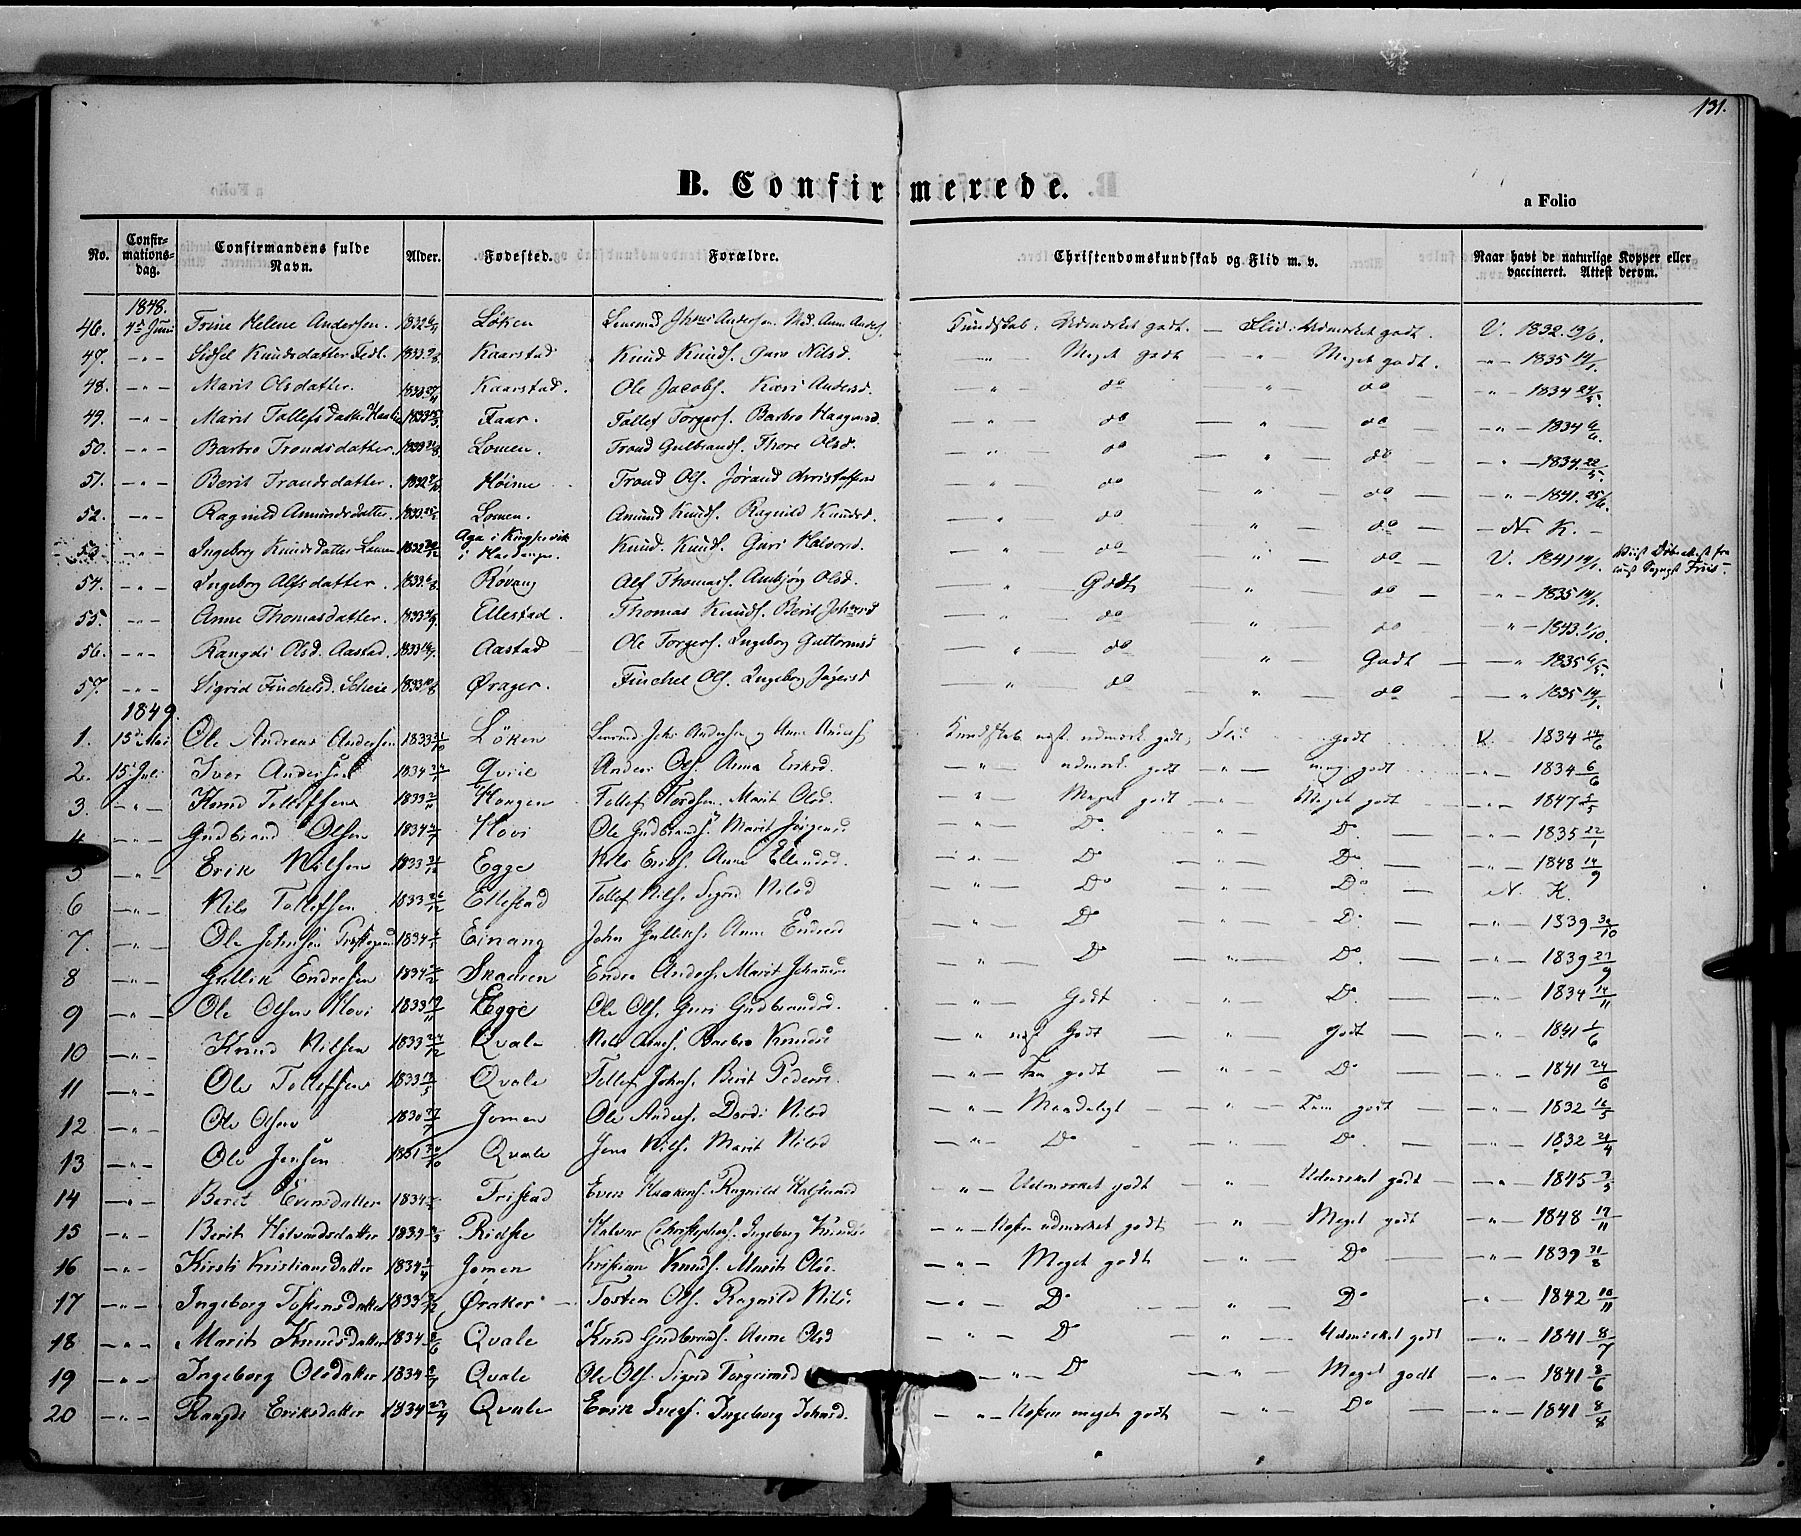 131.
B. Confirmerede.
a Folio
No. Confirmationsdag. Confirmandens fulde Navn. Alder. Fødested. Forældre. Christendomskundskab og Flid m. v. Naar havt de naturlige Kopper eller vaccineret. Attest derom.
1848.
46. 4de Juni Trine Helene Andersen. 1832 Löken Lensmd Andersen. Md. Ann Anders. Kundskab: Udmærket godt. — Flid: Udmærket godt. V. 1832. 19/6.
47. -"- Sidsel Knudsdatter 1833 Kaarstad Knud Knuds. Guro Nilsd. —"— Meget godt " Meget godt. -"- 1835 14/1.
48. -"- Marit Olsdatter. 1833 Kaarstad. Ole Jacobs. Kari Andersd. — " — do — " — do -"- 1834 24/5.
49. -"- Marit Tollefsdatter 1833 Faar. Tollef Torgers. Barbro Haagensd — " — do — " — do — -"- 1834 6/6.
50. -"- Barbro Trondsdatter. 1833 Lomen. Trond Gulbrands. Thore Olsd. — " — do — " — do — -"- 1834. 22/5.
51. -"- Berit Trondsdatter. 1832 Høime Trond Ols. Jørand — " — do — " — do — -"- 1841. 25/6.
52. -"- Ragnild Amundsdatter. 1833 Lomen. Amund Knuds. Ragnild Knudsd. — " — do — " — do — — N. K. —
53. -"- Ingeborg Knudsdatter Lomen 1832 Aga i Kingservik i Hardanger. Knud Knuds. Guri Halvord. — " — do — " — do — V. 1841 14/1.
54. -"- Ingeborg Alfsdatter. 1833 6/8. Røvang Alf Thomass. Ambjørg Olsd. — " — Godt — " — do — -"- 1835 14/1.
55. -"- Anne Thomasdatter. 1833 Ellestad. Thomas Knuds. Berit — " — do — " — do — -"- 1843. 1/10.
56. -"- Rangdi Olsd. Aastad. 1833 Aastad Ole Torgers. Ingeborg Guttormsd — " — do " Godt — — " 1835 6/5.
57. -"- Sigrid Finchelsd. Scheie. 1833 Ørager. Finchel Ols. Ingeborg — " — do — " — do — — " 1835 14/1.
1849.
1. 15de Mai Ole Andreas Andersen 1833 31/10 Löken Lensmd Andersen og Anne Kundskab næst udmærk. godt, Flid godt V. 1834 14/6
2. 15 Juli Iver Andersen 1834 Qvile Anders Ols. Anna Eriksd. — " — udmærk. godt — " — meg. godt — " — 1834 6/6
3. -"- Knud Tollefsen 1833 2/11 Haugen Tollef Tordsen. Marit Olsd. — " — Meget godt — " — Meget godt — " — 1847 2/5
4 -"- Gudbrand Olsen 1834 Hovi Ole Gudbrands. Marit Jørgensd — " — Do. — " — Do. — " — 1835 22/1
5 -"- Erik Nilsen 1833 Egge Nils Eriks. Anne Ellendsd. — " — Do — " — Do — — " — 1848 14/9
6 -"- Nils Tollefsen 1833 26/12 Ellestad Tollef Nils. Sigrid Nilsd — " — Do — " — Do — N. K.
7. -"- Ole Johnsen 1834 Einang John Gulliks. Anne Endresd — " — Do — " — Do. — — " — 1839 30/10
8 -"- Gullik Endresen 1834 Skadren Endre Anders. Marit — " — Do — " — Do. — — " — 1839 27/9
9 -"- Ole Olsen Hovi 1833 Egge Ole Ols. Guri Gudbrandsd. — " — Godt — " — Do. — — " — 1834 14/11
10 -"- Knud Nilsen 1833 27/12 Qvale Nils Barbro Knudsd — " næst Godt — " — Godt — — " — 1841 1/6
11 -"- Ole Tollefsen 1833 Qvale Tollef Johns. Berit Pedersd. — " — Tem. godt — " — Do — — " — 1841 24/6
12 -"- Ole Olsen 1830 Jomen Ole Anders. Dordi Nilsd — " — Maadeligt — " — Tem. godt — " — 1832 16/5
13 -"- Ole Jensen 1831 20/10 Qvale Jens Nils. Marit Nilsd — " — Do — " — Do. — — " — 1832 21/4
14 -"- Berit Evensdatter 1834 Tristad Even Haakens. Ragnild — " — Udmærket godt — " — Udmærket godt — " — 1845 3/5
15 -"- Berit Halvordsdatter 1834 Ridste Halvor Christophers. Ingeborg Knuds. — " — Næsten udmærket godt — " Meget godt — " — 1848 17/11
16 -"- Kirsti Kristiansdatter 1834 Jomen Kristian Knuds. Marit Ols. — " — Meget godt — " — Do — — " — 1839 31/8
17 -"- Ingeborg Tostensdatter 1833 Øraker Tosten Ols. Ragnild Nils. — " — Do — " — Do — — " — 1842 10/11
18 -"- Marit Knudsdatter 1834 Qvale Knud Gudbrands. Anne Olsd — " — Do — " — Udmærket godt — " — 1841 8/7
19 -"- Ingeborg Olsdatter 1834 Qvale Ole Ols. Sigrid Torgeirsd — " — Do — " — Meget godt — " — 1841 8/6
20 -"- Rangdi Eriksdatter 1834 23/4 Qvale Erik Ivers. Ingeborg Johnsd. — " — Næsten meget godt — " — Do — — " — 1841 8/8